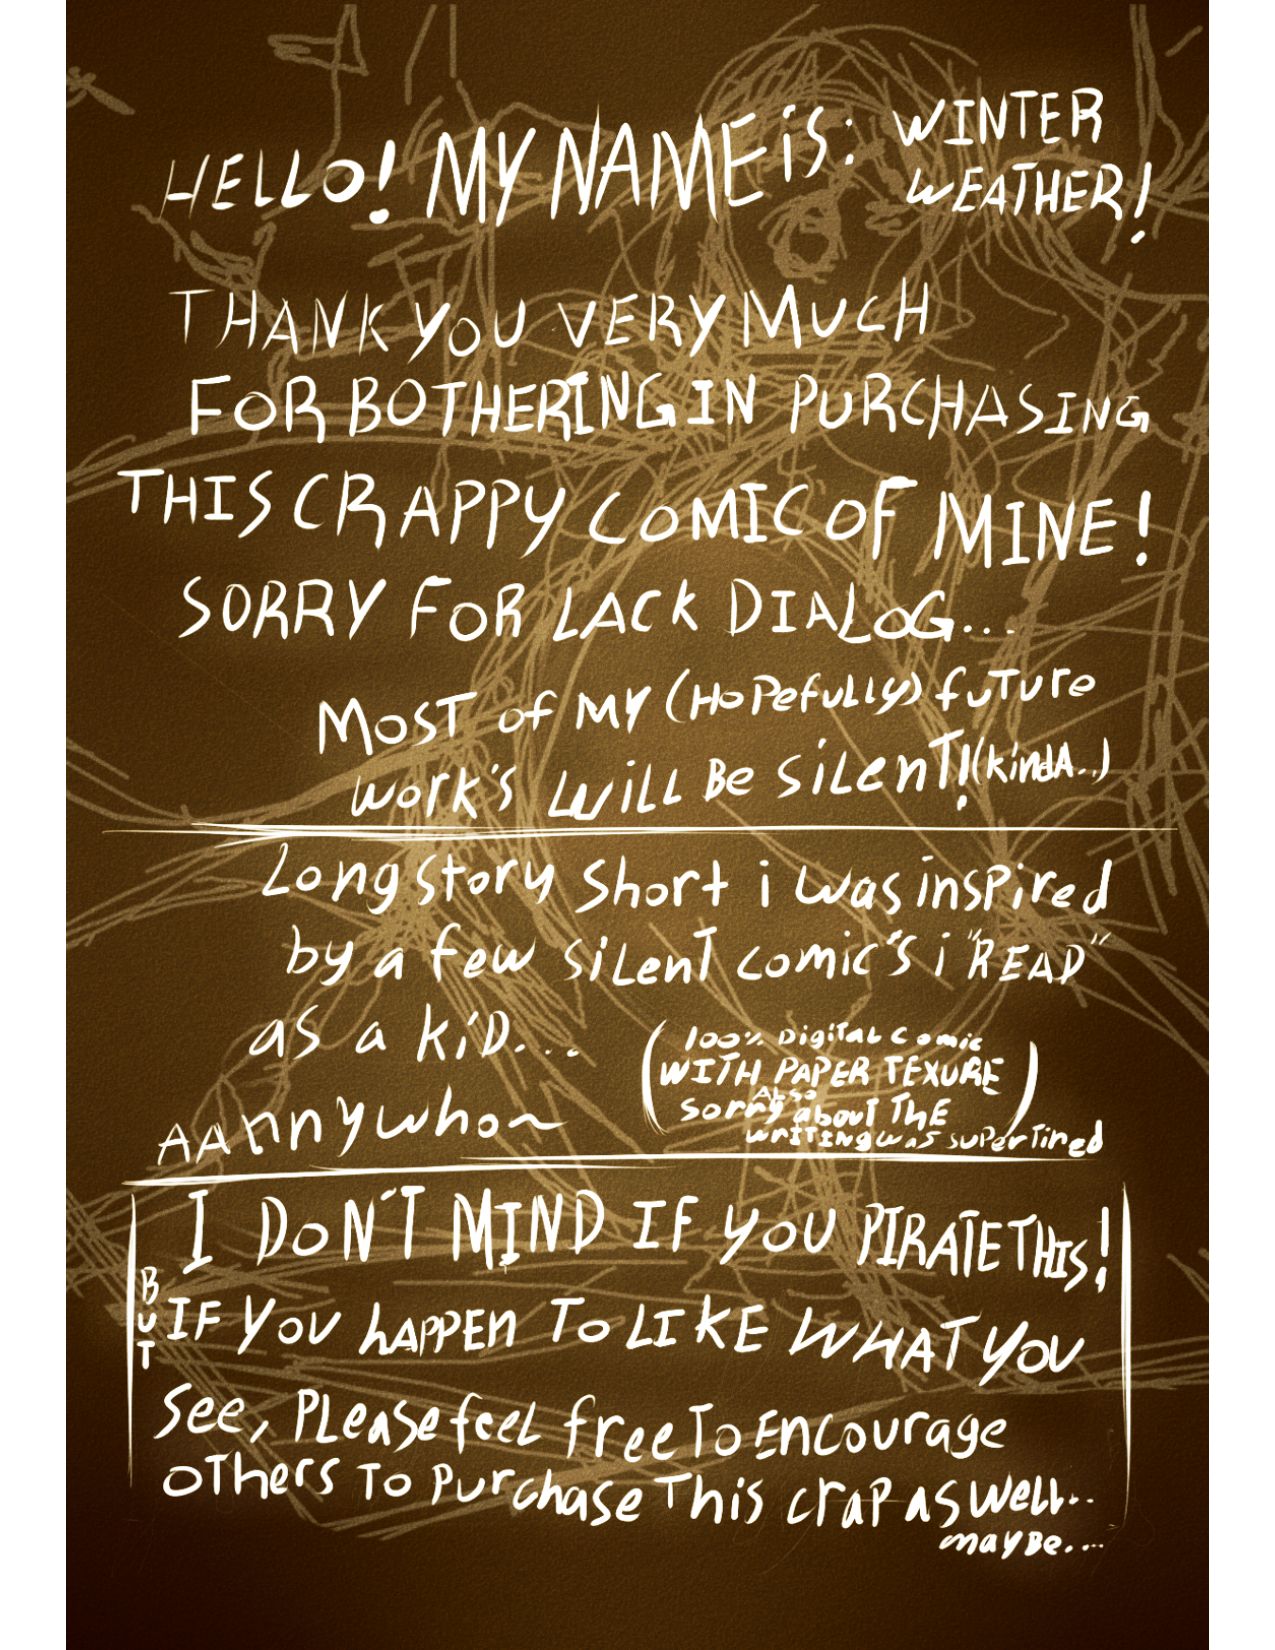 HELLO! MY NAME iS: WINTER WEATHER!
THANK YOU VERY MUCH
FOR BOTHERING IN PURCHASING
THIS CRAPPY COMIC OF MINE!
SORRY FOR LACK DIALOG...
MOST of MY (HoPefuLLy) fuTure
work's WiLL Be SiLenT! (kindA...)
Long story short i was inspired
by a few SiLenT comic's i "READ"
as a kiD...
(100% DigiTaL Comic
WITH PAPER TEXURE
ALSO
sorry about THE
WRITING was super Tired)
AAnnywho~
I DON'T MIND IF YOU PIRATE THIS!
BUT
IF YOU hAPPEN TO LIKE WHAT YOU
See, PLeASe feeL free To Encourage
OTHers To Purchase This crap as well..
mayBe....